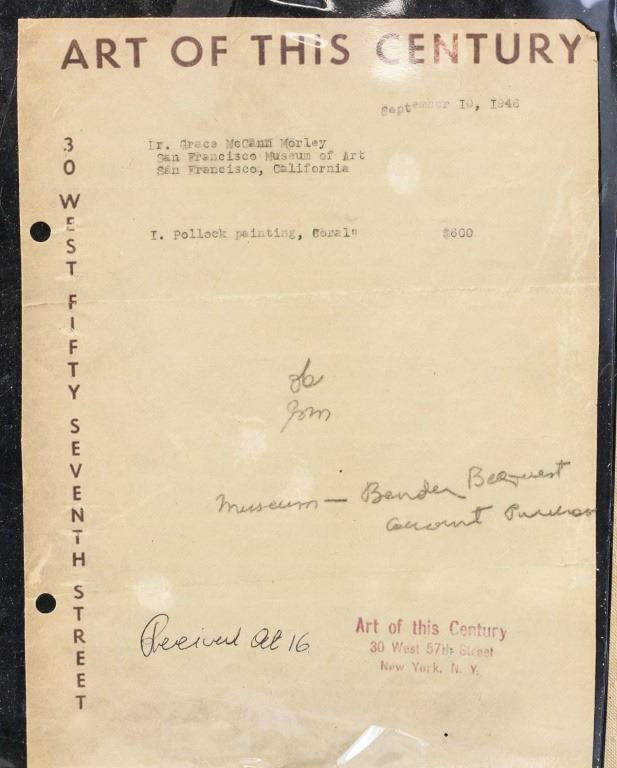 ART OF THIS CENTURY
30 WEST FIFTY SEVENTH STREET
September 10, 1946
Dr. Grace McCann Morley
San Francisco Museum of Art
San Francisco, California
I. Pollock painting, Coral" $600
ok
Museum — Bender Bequest
account Purchase
Received Oct 16
Art of this Century
30 West 57th Street
New York, N. Y.